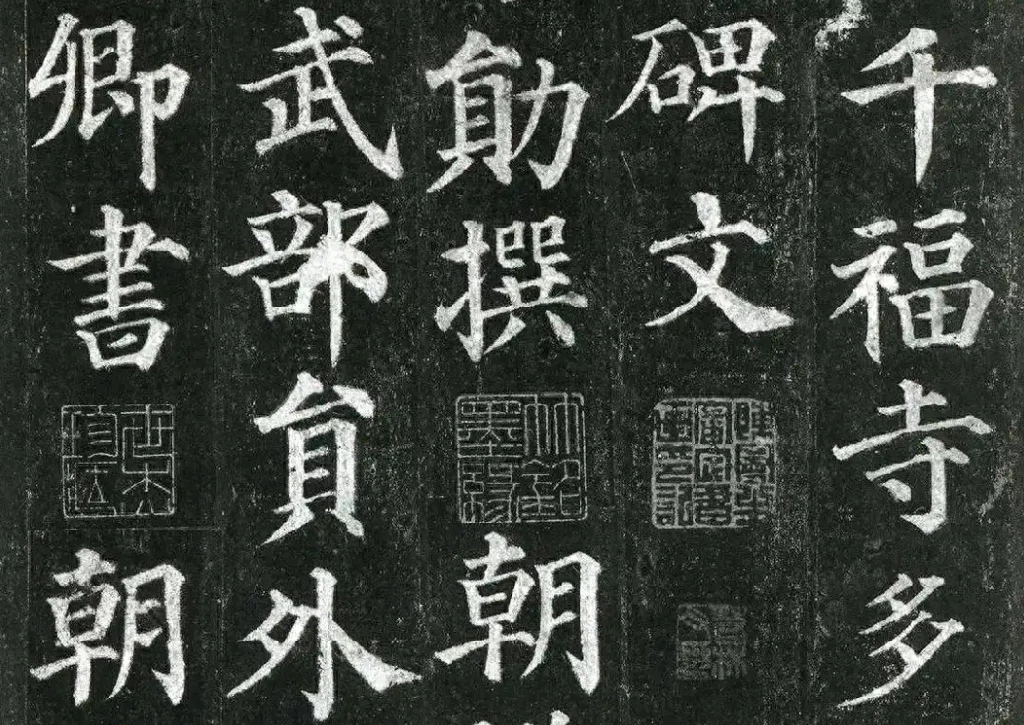 千福寺多
碑文
勛撰朝
武部貟外
卿書朝